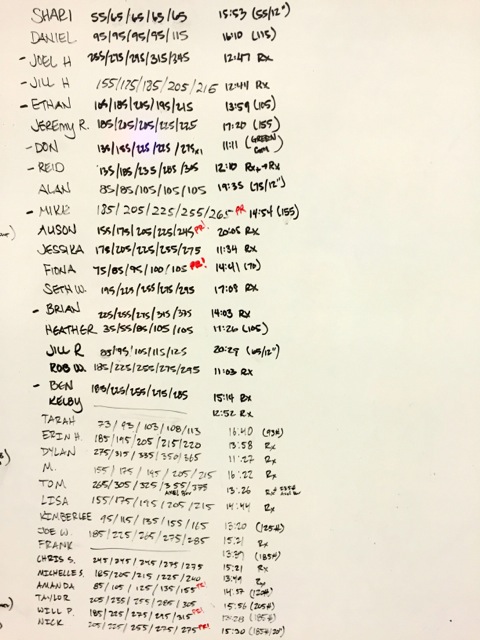 SHARI 55/65/65/65/65 15:53 (55/12")
DANIEL 95/95/95/95/115 16:10 (115)
- JOEL H 255/275/295/315/295 12:47 Rx
- JILL H 155/175/185/205/215 12:44 Rx
- ETHAN 165/185/205/195/215 13:59 (105)
JEREMY R. 185/205/205/225/225 17:20 (155)
- DON 135/185/225/225/275x1 11:11 (GREEN
- REID 135/185/235/285/305 12:10 Rx+→Rx
ALAN 85/85/105/105/105 19:35 (75/12")
- MIKE 185/205/225/255/265 PR 14:54 (155)
ALISON 155/175/205/225/245 PR! 20:05 RX
JESSIKA 175/205/225/255/275 11:34 RX
FIONA 75/85/95/100/105 PR! 14:41 (70)
SETH W. 195/225/255/275/295 17:08 RX
- BRIAN 225/255/275/315/375 14:03 RX
HEATHER 35/55/85/105/105 17:26 (105)
JILL R 85/95/105/115/125 20:29 (65/12")
ROB W. 185/225/255/275/295 11:03 RX
- BEN 185/225/255/275/285 15:14 Rx
KELBY 12:52 RX
TARAH 73/93/103/108/113 16:40 (93#)
ERIN H. 185/195/205/215/220 13:58 Rx
DYLAN 275/315/335/350/365 11:27 Rx
M. 155/175/195/205/215 16:22 Rx
TOM 265/305/325/355/375 13:26 Rx
AXEL BAR
LISA 155/175/195/205/215 14:44 Rx
KIMBERLEE 95/115/135/155/165 13:20 (125#)
JOE W. 185/225/265/275/285 15:21 Rx
FRANK 13:39 (185#)
CHRIS S. 245/245/245/275/275 15:21 Rx
MICHELLE S. 185/205/215/225/240 13:49 Rx
AMANDA 85/105/125/135/155 PR! 14:57 (120#)
TAYLOR 205/235/255/285/305 15:56 (205#)
WILL P. 185/225/275/295/315 PR! 13:28 (185#)
NICK 205/225/255/275/275 PR! 15:30 (185#/20")